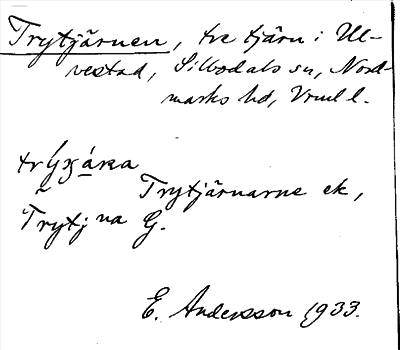 Trytjärnen, tre tjärn i Ul-
vestad, Silbodals sn, Nord-
marks hd, Vrml l.
Trytjärnarne ek,
Trytj na G.
E. Andersson 1933.